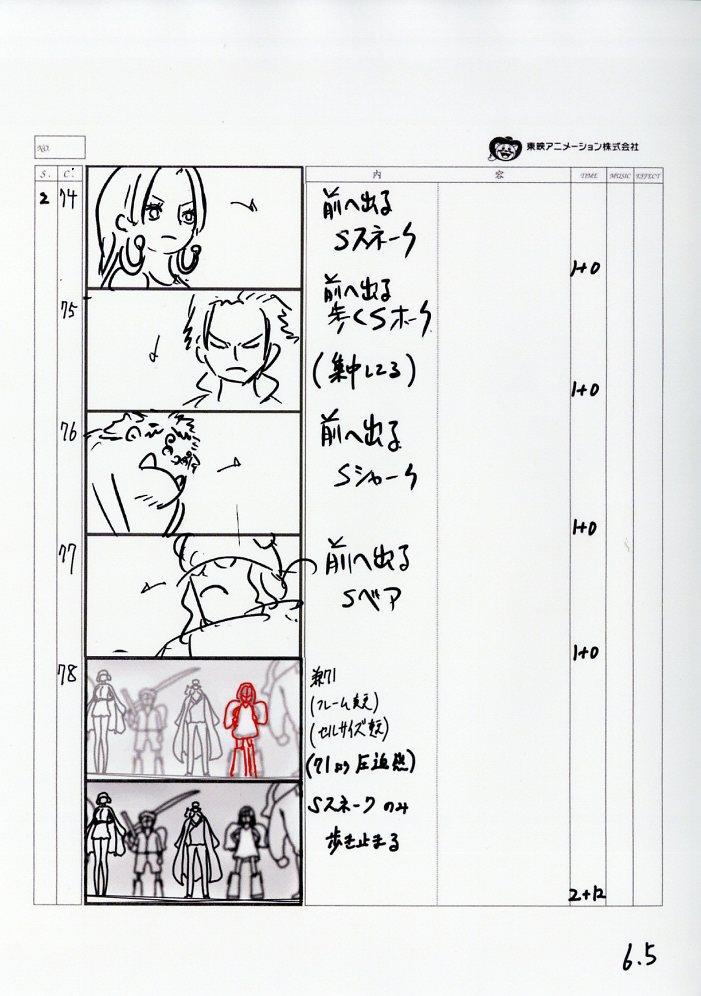 NO.
東映アニメーション株式会社
S. C. 内 容 TIME MUSIC EFFECT
2 74
前へ出る
Sスネーク
1+0
75
前へ出る
歩くSホーク
(集中してる)
1+0
76
前へ出る
Sシャーク
1+0
77
前へ出る
Sベア
1+0
78
兼71
(フレーム変え)
(セルサイズ変え)
(71より圧迫感)
Sスネークのみ
歩き止まる
2+12
6.5